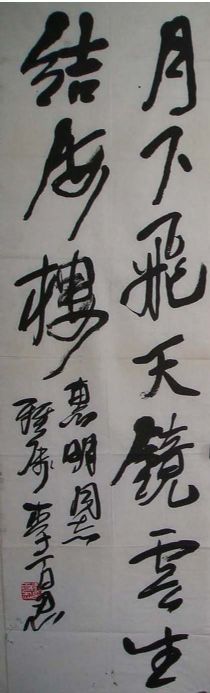 月下飛天鏡雲生
結海樓
惠明同志
雅属 李百忍